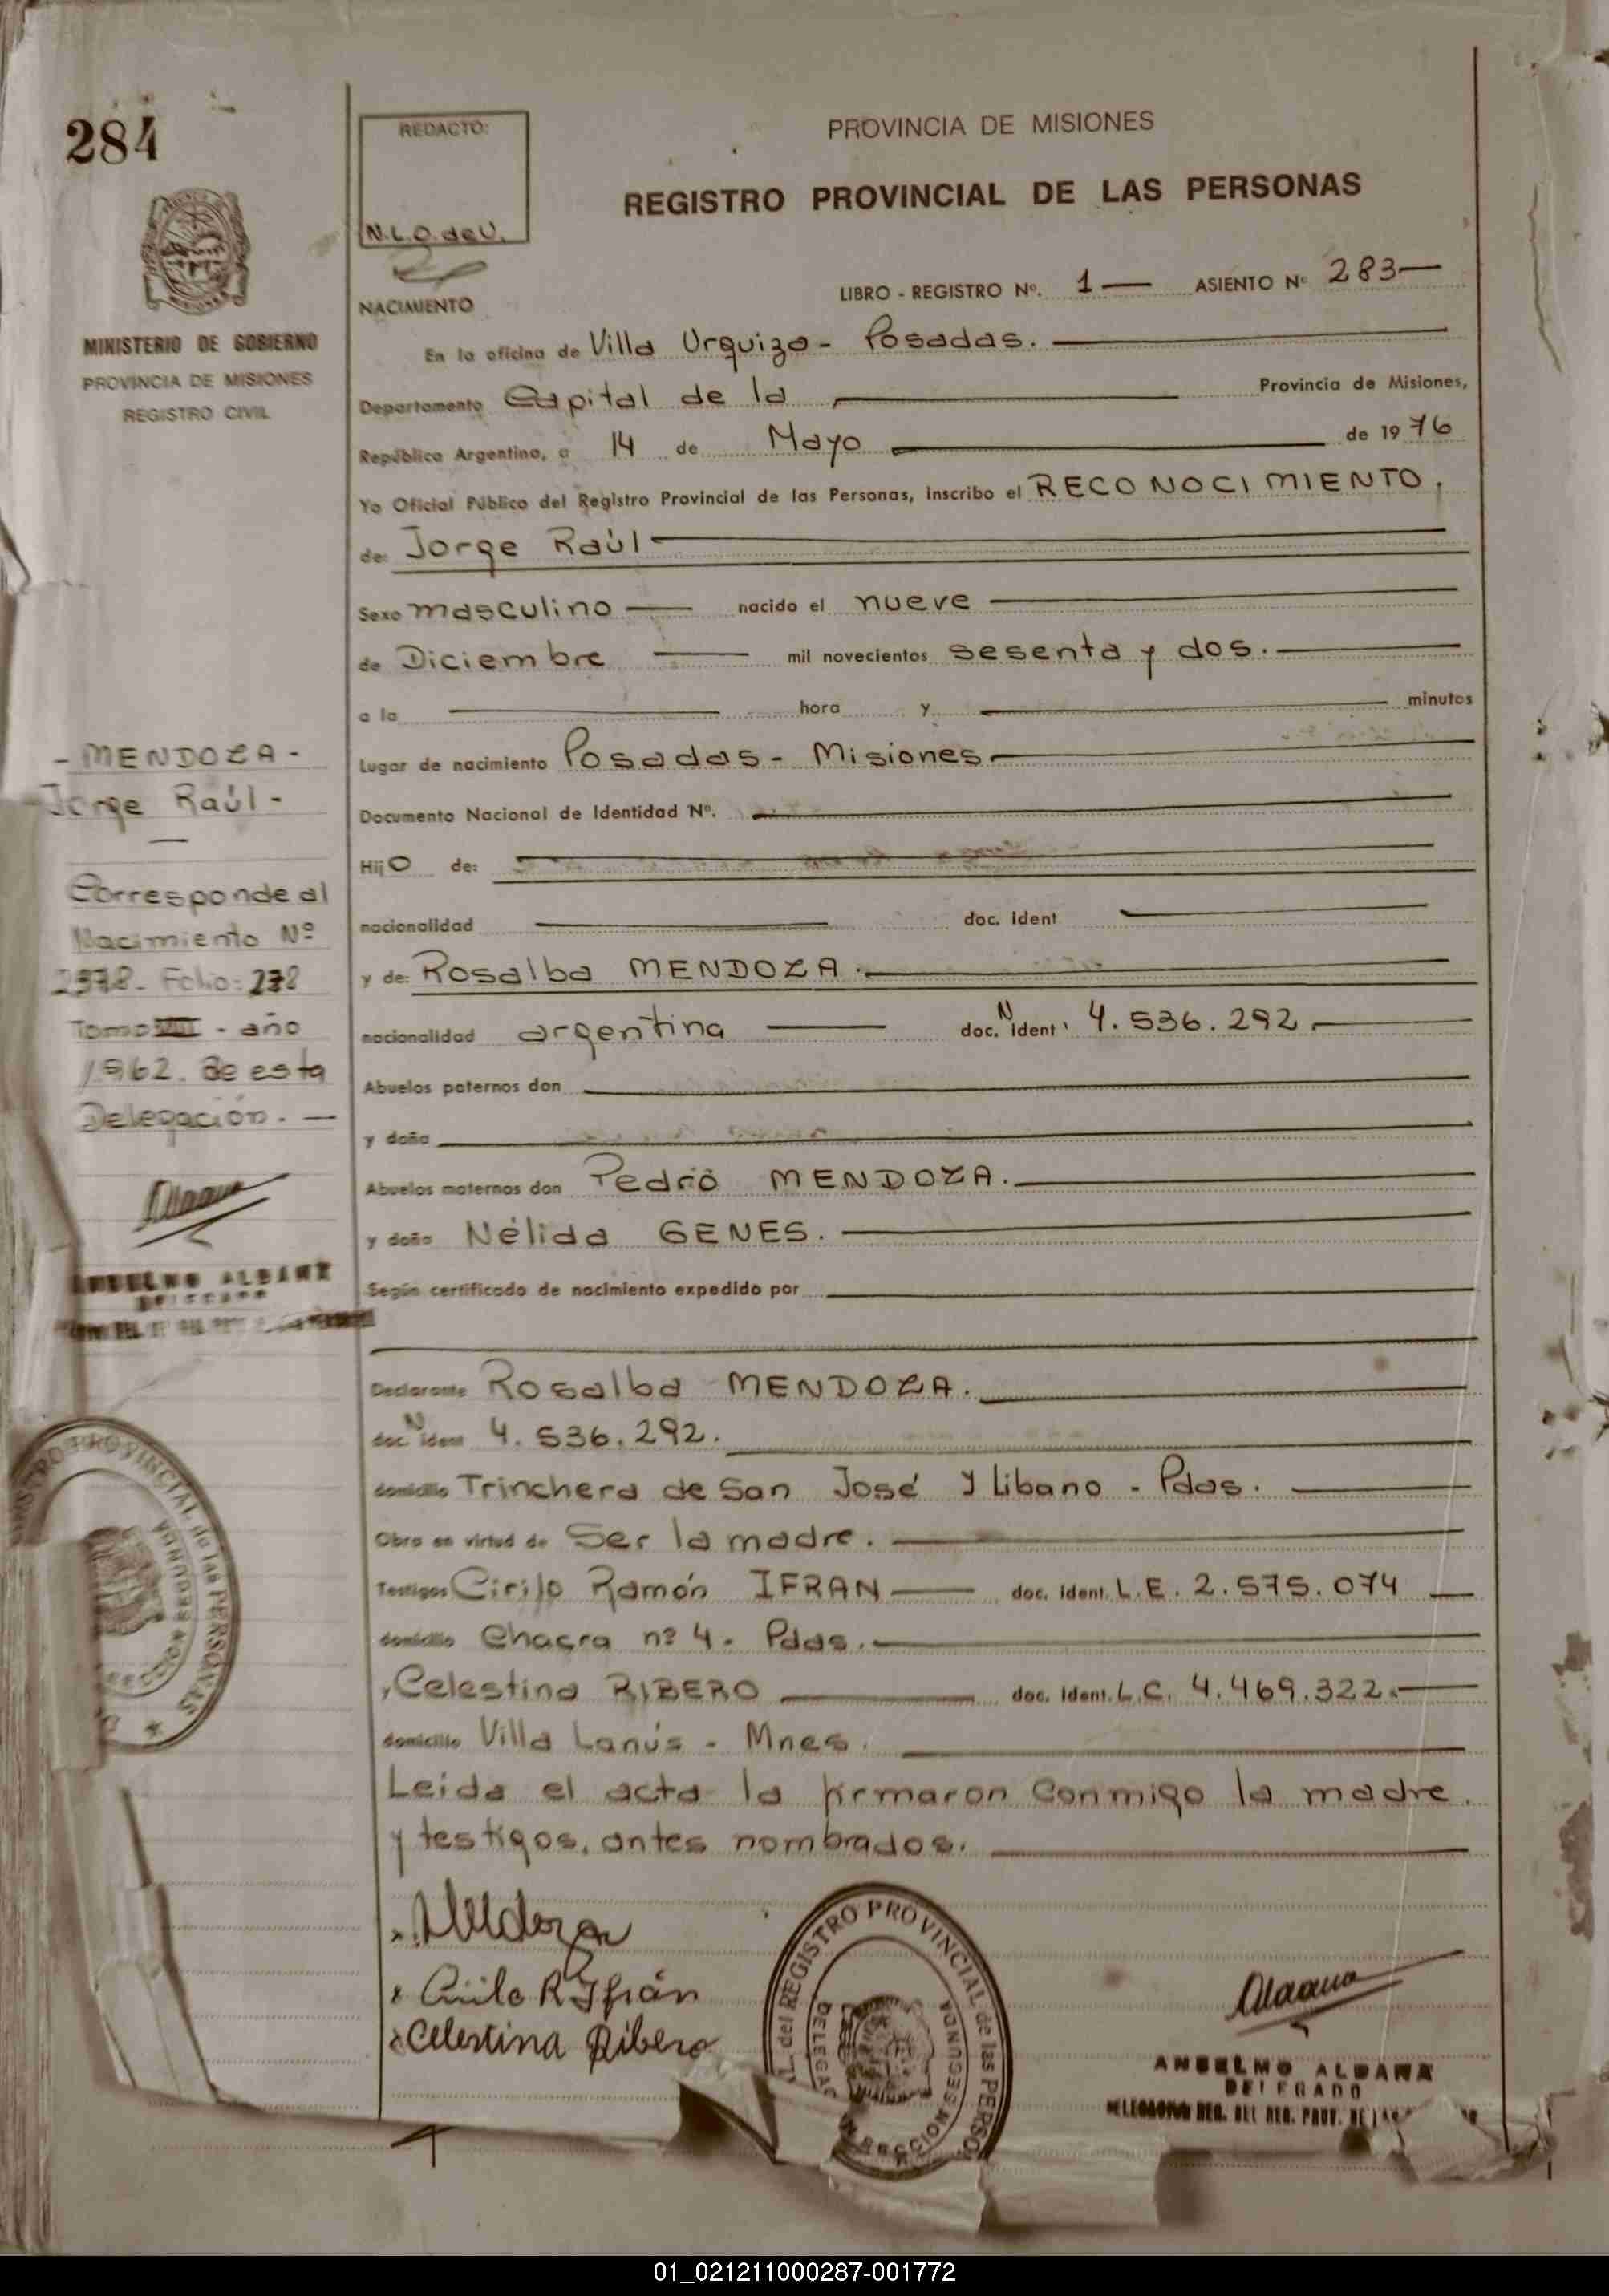 284
REDACTO:
N.L.O. de U.
PROVINCIA DE MISIONES
REGISTRO PROVINCIAL DE LAS PERSONAS
MINISTERIO DE GOBIERNO
PROVINCIA DE MISIONES
REGISTRO CIVIL
NACIMIENTO
LIBRO - REGISTRO Nº. 1 — ASIENTO Nº 283 —
En la oficina de Villa Urquiza - Posadas.
Departamento Capital de la Provincia de Misiones,
República Argentina, a 14 de Mayo de 1976
Yo Oficial Público del Registro Provincial de las Personas, inscribo el RECONOCIMIENTO.
de: Jorge Raúl
Sexo masculino — nacido el nueve
de Diciembre — mil novecientos sesenta y dos.
a la hora y minutos
Lugar de nacimiento Posadas - Misiones
Documento Nacional de Identidad Nº.
Hijo de:
nacionalidad doc. ident
y de: Rosalba MENDOZA.
nacionalidad argentina — doc. N ident. 4.536.292.
Abuelos paternos don
y doña
Abuelos maternos don Pedro MENDOZA.
y doña Nélida GENES.
Según certificado de nacimiento expedido por
Declarante Rosalba MENDOZA.
doc. N ident 4.536.292.
domicilio Trinchera de San José y Libano - Pdas.
Obra en virtud de Ser la madre.
Testigos Cirilo Ramón IFRAN — doc. ident. L.E. 2.575.074
domicilio Chacra nº 4. Pdas.
y Celestina RIBERO doc. ident. L.C. 4.469.322.
domicilio Villa Lanús - Mnes.
Leida el acta la firmaron conmigo la madre.
y testigos, antes nombrados.
- MENDOZA -
Jorge Raúl -
Corresponde al
Nacimiento Nº
Folio:
Tomo - año
1962. de esta
Delegación. —
ANSELMO ALDANA
DELEGADO
REGISTRO PROVINCIAL de las PERSONAS
SECCION SEGUNDA
Mendoza
Cirilo R Ifrán
Celestina Ribero
del REGISTRO PROVINCIAL de las PERSO
SECCION SEGUNDA
ANSELMO ALDANA
DELEGADO
01_021211000287-001772